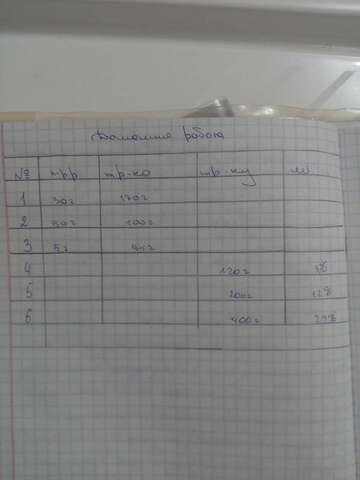 Домашня робота
№ mрр mр-ка mр-ну W
1 30г 170г
2 50г 200г
3 5г 45г
4 120г
5 200г 12%
6 400г